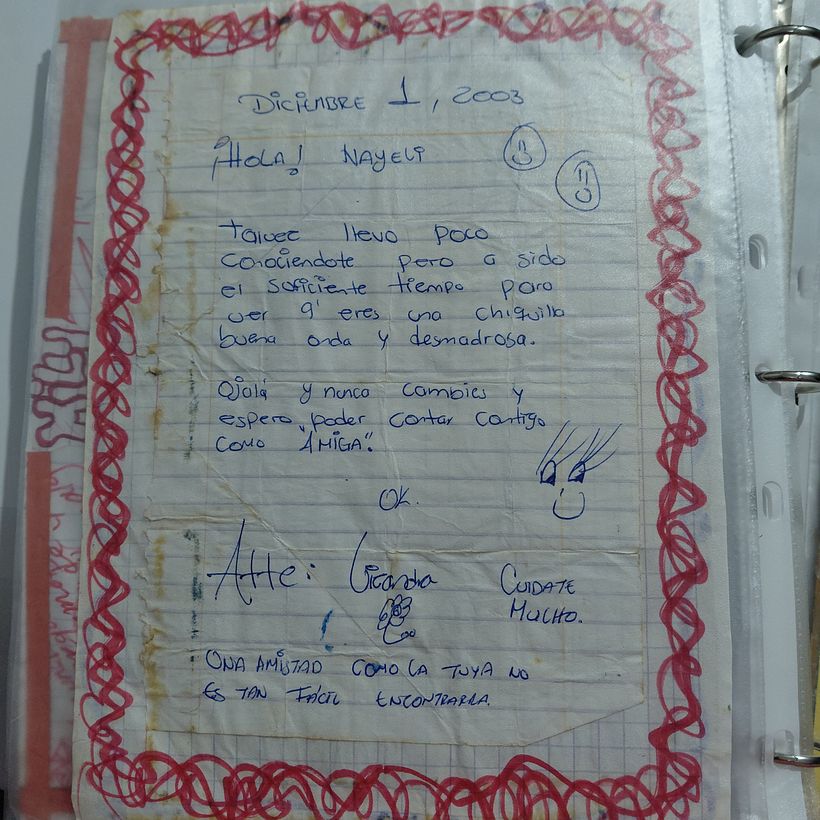 DICIEMBRE 1, 2003
¡HOLA! NAYELI
talvec llevo poco
conociendote pero a sido
el soficiente tiempo para
ver q' eres una chiquilla
buena onda y desmadrosa.
Ojalá y nunca cambies y
espero poder contar contigo
como "AMIGA".
OK.
Atte:
CUIDATE
MUCHO.
UNA AMISTAD COMO LA TUYA NO
ES TAN FÁCIL ENCONTRARLA.